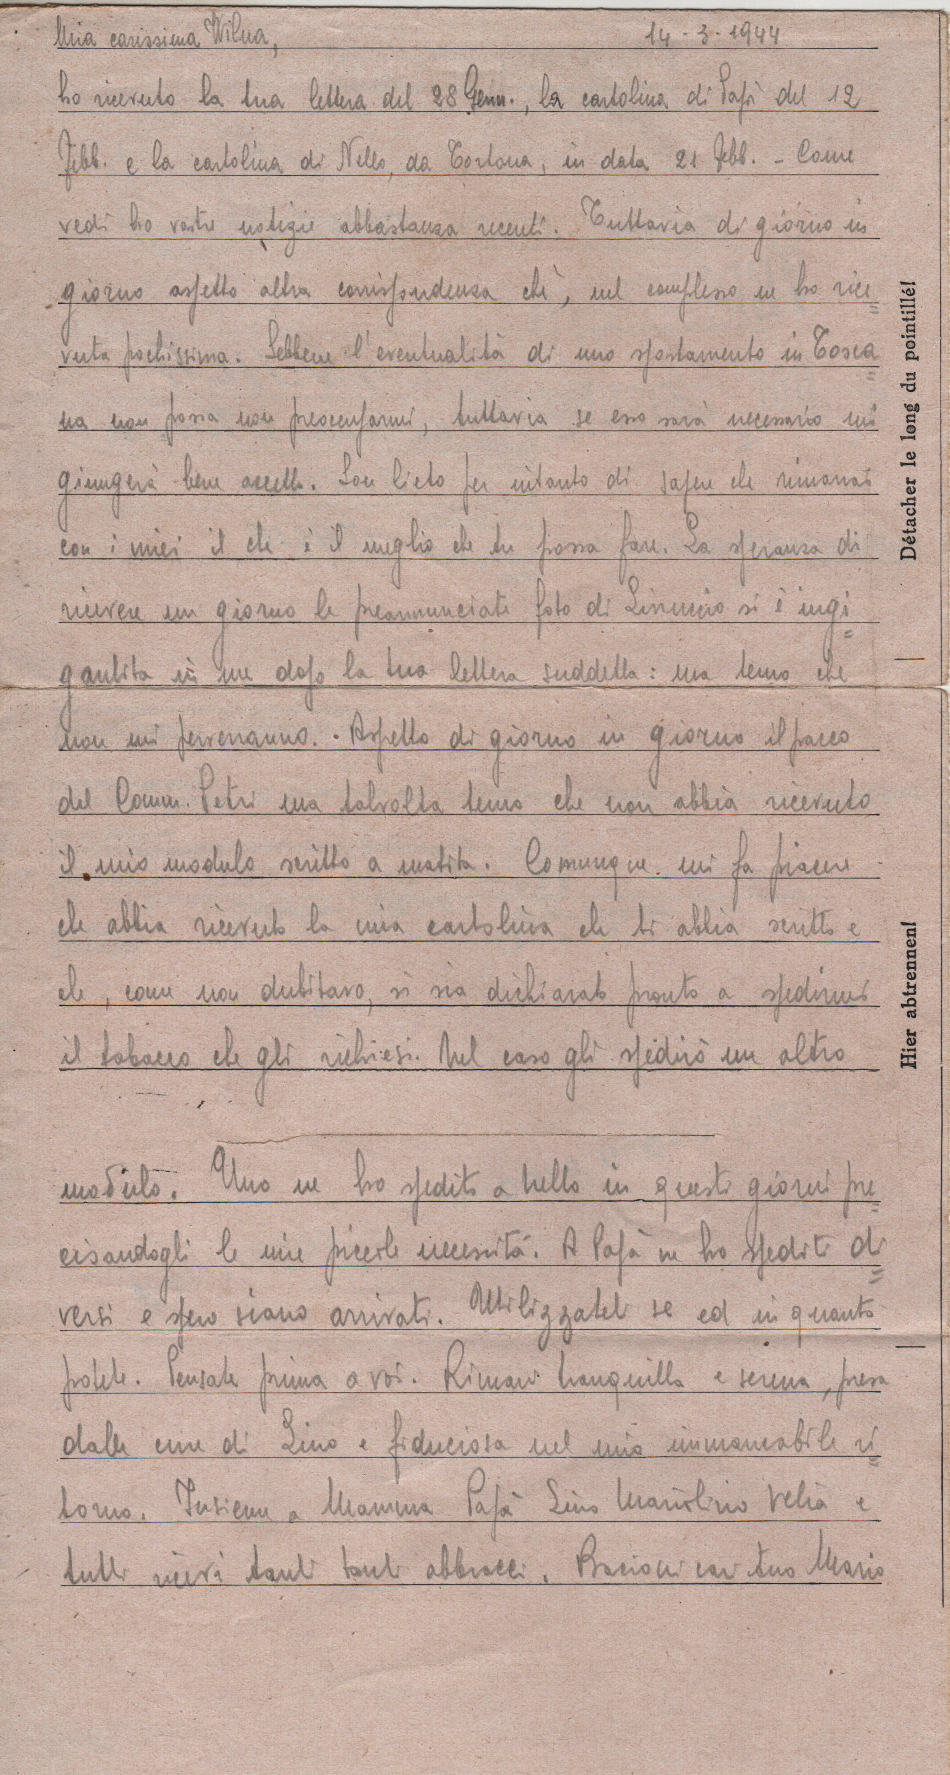 Mia carissima Wilna, 14-3-1944
ho ricevuto la tua lettera del 28 Genn., la cartolina di Papà del 12
Febb. e la cartolina di Nello, da Tortona, in data 21 Febb. - Come
vedi ho vostre notizie abbastanza recenti. Tuttavia di giorno in
giorno aspetto altra corrispondenza chè, nel complesso ne ho rice=
vuta pochissima. Sebbene l'eventualità di uno spostamento in Tosca=
na non possa non preoccuparmi, tuttavia se esso sarà necessario mi
giungerà bene accetto. Son lieto per intanto di sapere che rimarrai
con i miei il che è il meglio che tu possa fare. La speranza di
ricevere un giorno le preannunciate foto di Linuccio si è ingi=
gantita in me dopo la tua lettera suddetta: ma temo che
non mi perverranno. - Aspetto di giorno in giorno il pacco
del Comm. Petri ma talvolta temo che non abbia ricevuto
il mio modulo scritto a matita. Comunque mi fa piacere
che abbia ricevuto la mia cartolina che ti abbia scritto e
che, come non dubitavo, si sia dichiarato pronto a spedirmi
il tabacco che gli richiesi. Nel caso gli spedirò un altro
modulo. Uno ne ho spedito a Nello in questi giorni pre=
cisandogli le mie piccole necessità. A Papà ne ho spediti di=
versi e spero siano arrivati. Utilizzateli se ed in quanto
potete. Pensate prima a voi. Rimani tranquilla e serena, presa
dalle cure di Lino e fiduciosa nel mio immancabile ri=
torno. Insieme a Mamma Papà Lino Mariolino Velia e
tutti ricevi tanti tanti abbracci. Bacioni cari tuo Mario
Détacher le long du pointillé!
Hier abtrennen!